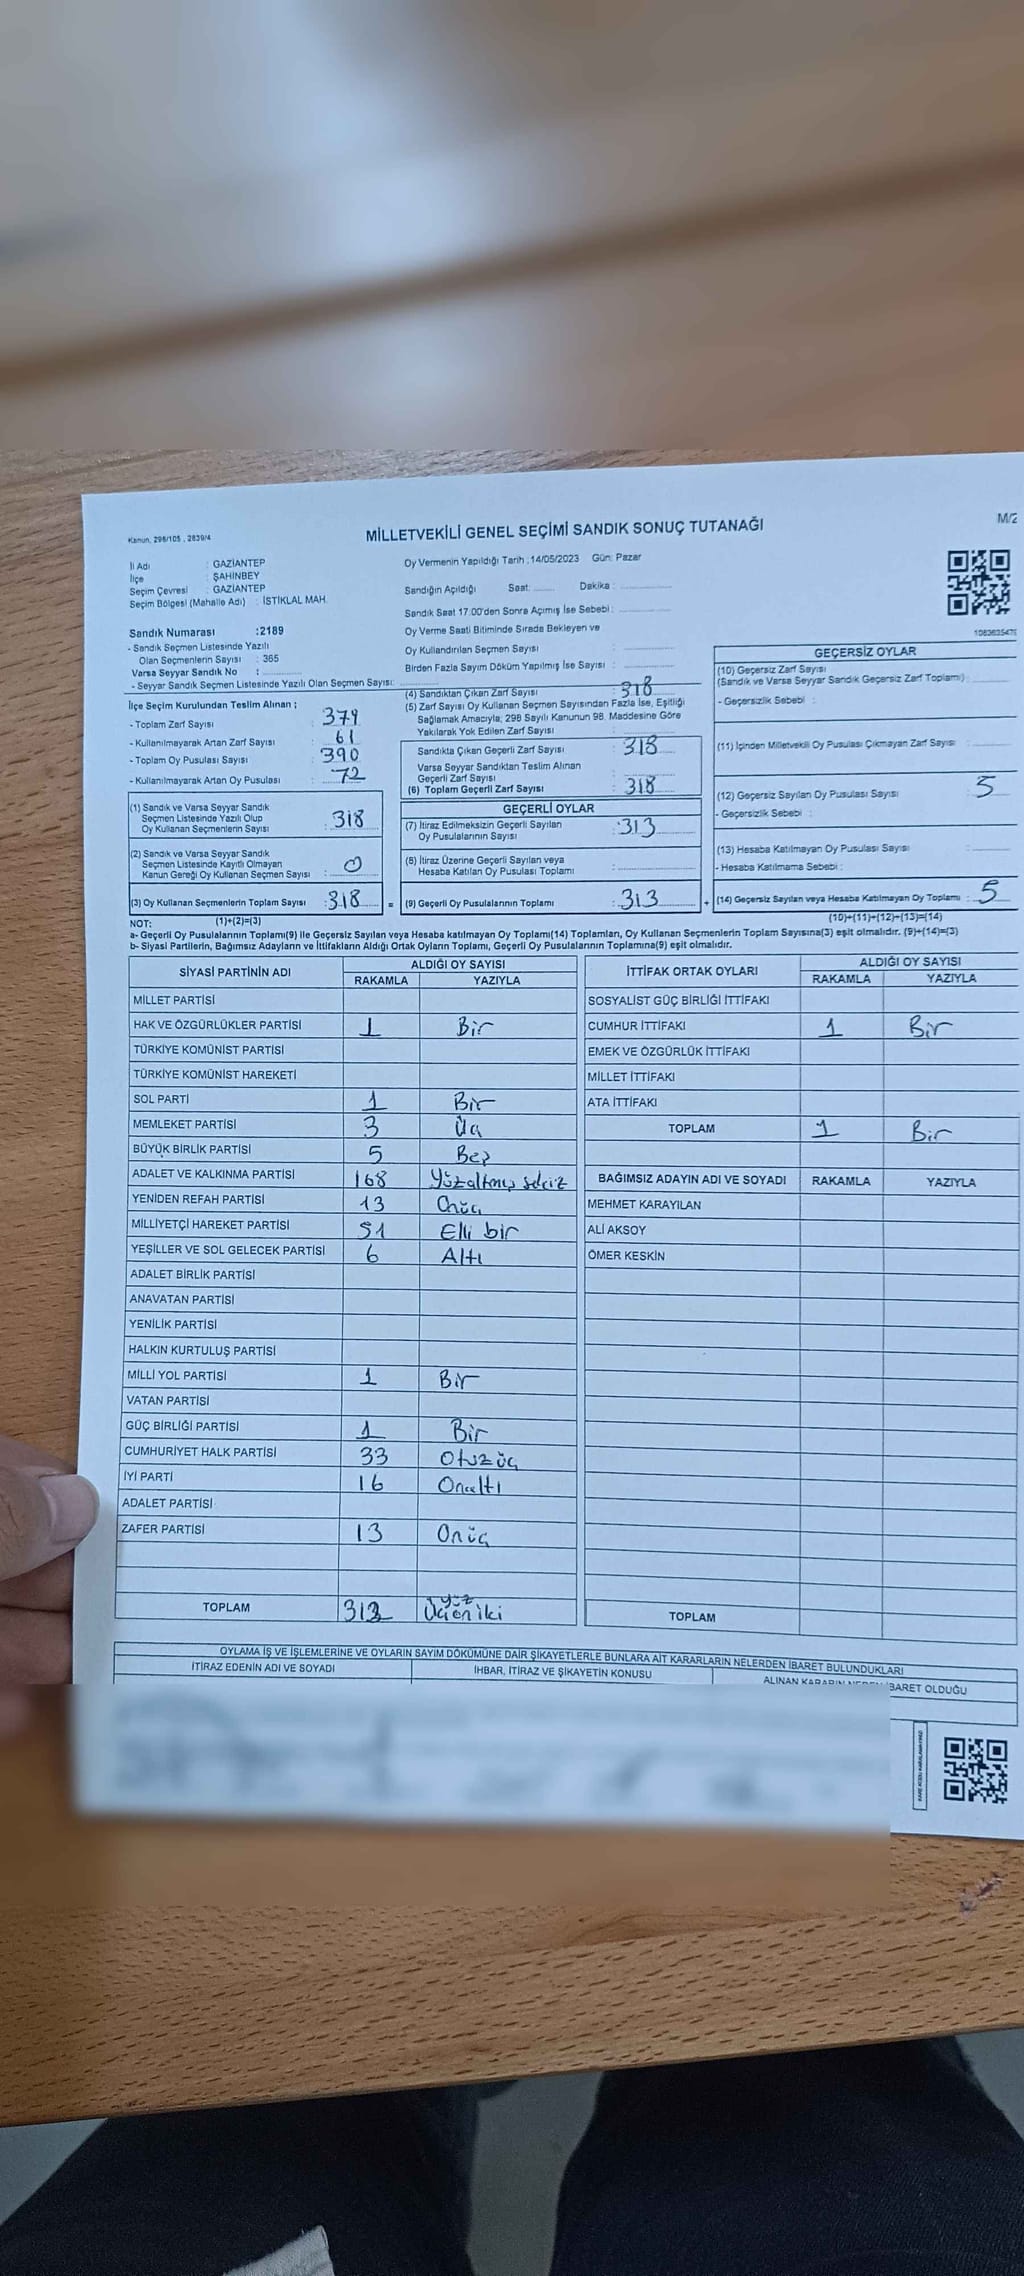 Kanun, 298/105 , 2839/4
MİLLETVEKİLİ GENEL SEÇİMİ SANDIK SONUÇ TUTANAĞI
M/2
İl Adı : GAZİANTEP
İlçe : ŞAHİNBEY
Seçim Çevresi : GAZİANTEP
Seçim Bölgesi (Mahalle Adı) : İSTİKLAL MAH.
Sandık Numarası :2189
- Sandık Seçmen Listesinde Yazılı
Olan Seçmenlerin Sayısı : 365
Varsa Seyyar Sandık No :
- Seyyar Sandık Seçmen Listesinde Yazılı Olan Seçmen Sayısı:
Oy Vermenin Yapıldığı Tarih :14/05/2023 Gün: Pazar
Sandığın Açıldığı Saat: Dakika :
Sandık Saat 17.00'den Sonra Açımış İse Sebebi :
Oy Verme Saati Bitiminde Sırada Bekleyen ve
Oy Kullandırılan Seçmen Sayısı :
Birden Fazla Sayım Döküm Yapılmış İse Sayısı :
İlçe Seçim Kurulundan Teslim Alınan ;
- Toplam Zarf Sayısı : 379
- Kullanılmayarak Artan Zarf Sayısı : 61
- Toplam Oy Pusulası Sayısı : 390
- Kullanılmayarak Artan Oy Pusulası : 72
(1) Sandık ve Varsa Seyyar Sandık
Seçmen Listesinde Yazılı Olup
Oy Kullanan Seçmenlerin Sayısı : 318
(2) Sandık ve Varsa Seyyar Sandık
Seçmen Listesinde Kayıtlı Olmayan
Kanun Gereği Oy Kullanan Seçmen Sayısı : 0
(3) Oy Kullanan Seçmenlerin Toplam Sayısı : 318 =
(1)+(2)=(3)
(4) Sandıktan Çıkan Zarf Sayısı : 318
(5) Zarf Sayısı Oy Kullanan Seçmen Sayısından Fazla İse, Eşitliği
Sağlamak Amacıyla, 298 Sayılı Kanunun 98. Maddesine Göre
Yakılarak Yok Edilen Zarf Sayısı :
Sandıkta Çıkan Geçerli Zarf Sayısı : 318
Varsa Seyyar Sandıktan Teslim Alınan
Geçerli Zarf Sayısı :
(6) Toplam Geçerli Zarf Sayısı : 318
GEÇERLİ OYLAR
(7) İtiraz Edilmeksizin Geçerli Sayılan
Oy Pusulalarının Sayısı : 313
(8) İtiraz Üzerine Geçerli Sayılan veya
Hesaba Katılan Oy Pusulası Toplamı :
(9) Geçerli Oy Pusulalarının Toplamı : 313 +
GEÇERSİZ OYLAR
(10) Geçersiz Zarf Sayısı
(Sandık ve Varsa Seyyar Sandık Geçersiz Zarf Toplamı) :
- Geçersizlik Sebebi :
(11) İçinden Milletvekili Oy Pusulası Çıkmayan Zarf Sayısı :
(12) Geçersiz Sayılan Oy Pusulası Sayısı : 5
- Geçersizlik Sebebi :
(13) Hesaba Katılmayan Oy Pusulası Sayısı :
- Hesaba Katılmama Sebebi :
(14) Geçersiz Sayılan veya Hesaba Katılmayan Oy Toplamı : 5
(10)+(11)+(12)+(13)=(14)
NOT:
a- Geçerli Oy Pusulalarının Toplamı(9) ile Geçersiz Sayılan veya Hesaba katılmayan Oy Toplamı(14) Toplamları, Oy Kullanan Seçmenlerin Toplam Sayısına(3) eşit olmalıdır. (9)+(14)=(3)
b- Siyasi Partilerin, Bağımsız Adayların ve İttifakların Aldığı Ortak Oyların Toplamı, Geçerli Oy Pusulalarının Toplamına(9) eşit olmalıdır.
SİYASİ PARTİNİN ADI ALDIĞI OY SAYISI
RAKAMLA YAZIYLA
MİLLET PARTİSİ
HAK VE ÖZGÜRLÜKLER PARTİSİ 1 Bir
TÜRKİYE KOMÜNİST PARTİSİ
TÜRKİYE KOMÜNİST HAREKETİ
SOL PARTİ 1 Bir
MEMLEKET PARTİSİ 3 Üç
BÜYÜK BİRLİK PARTİSİ 5 Beş
ADALET VE KALKINMA PARTİSİ 168 Yüzaltmış sekiz
YENİDEN REFAH PARTİSİ 13 Onüç
MİLLİYETÇİ HAREKET PARTİSİ 51 Elli bir
YEŞİLLER VE SOL GELECEK PARTİSİ 6 Altı
ADALET BİRLİK PARTİSİ
ANAVATAN PARTİSİ
YENİLİK PARTİSİ
HALKIN KURTULUŞ PARTİSİ
MİLLİ YOL PARTİSİ 1 Bir
VATAN PARTİSİ
GÜÇ BİRLİĞİ PARTİSİ 1 Bir
CUMHURİYET HALK PARTİSİ 33 Otuzüç
İYİ PARTİ 16 Onaltı
ADALET PARTİSİ
ZAFER PARTİSİ 13 Onüç
TOPLAM 312 Üçyüzoniki
İTTİFAK ORTAK OYLARI ALDIĞI OY SAYISI
RAKAMLA YAZIYLA
SOSYALİST GÜÇ BİRLİĞİ İTTİFAKI
CUMHUR İTTİFAKI 1 Bir
EMEK VE ÖZGÜRLÜK İTTİFAKI
MİLLET İTTİFAKI
ATA İTTİFAKI
TOPLAM 1 Bir
BAĞIMSIZ ADAYIN ADI VE SOYADI RAKAMLA YAZIYLA
MEHMET KARAYILAN
ALİ AKSOY
ÖMER KESKİN
TOPLAM
OYLAMA İŞ VE İŞLEMLERİNE VE OYLARIN SAYIM DÖKÜMÜNE DAİR ŞİKAYETLERLE BUNLARA AİT KARARLARIN NELERDEN İBARET BULUNDUKLARI
İTİRAZ EDENİN ADI VE SOYADI İHBAR, İTİRAZ VE ŞİKAYETİN KONUSU ALINAN KARARIN NEDEN İBARET OLDUĞU